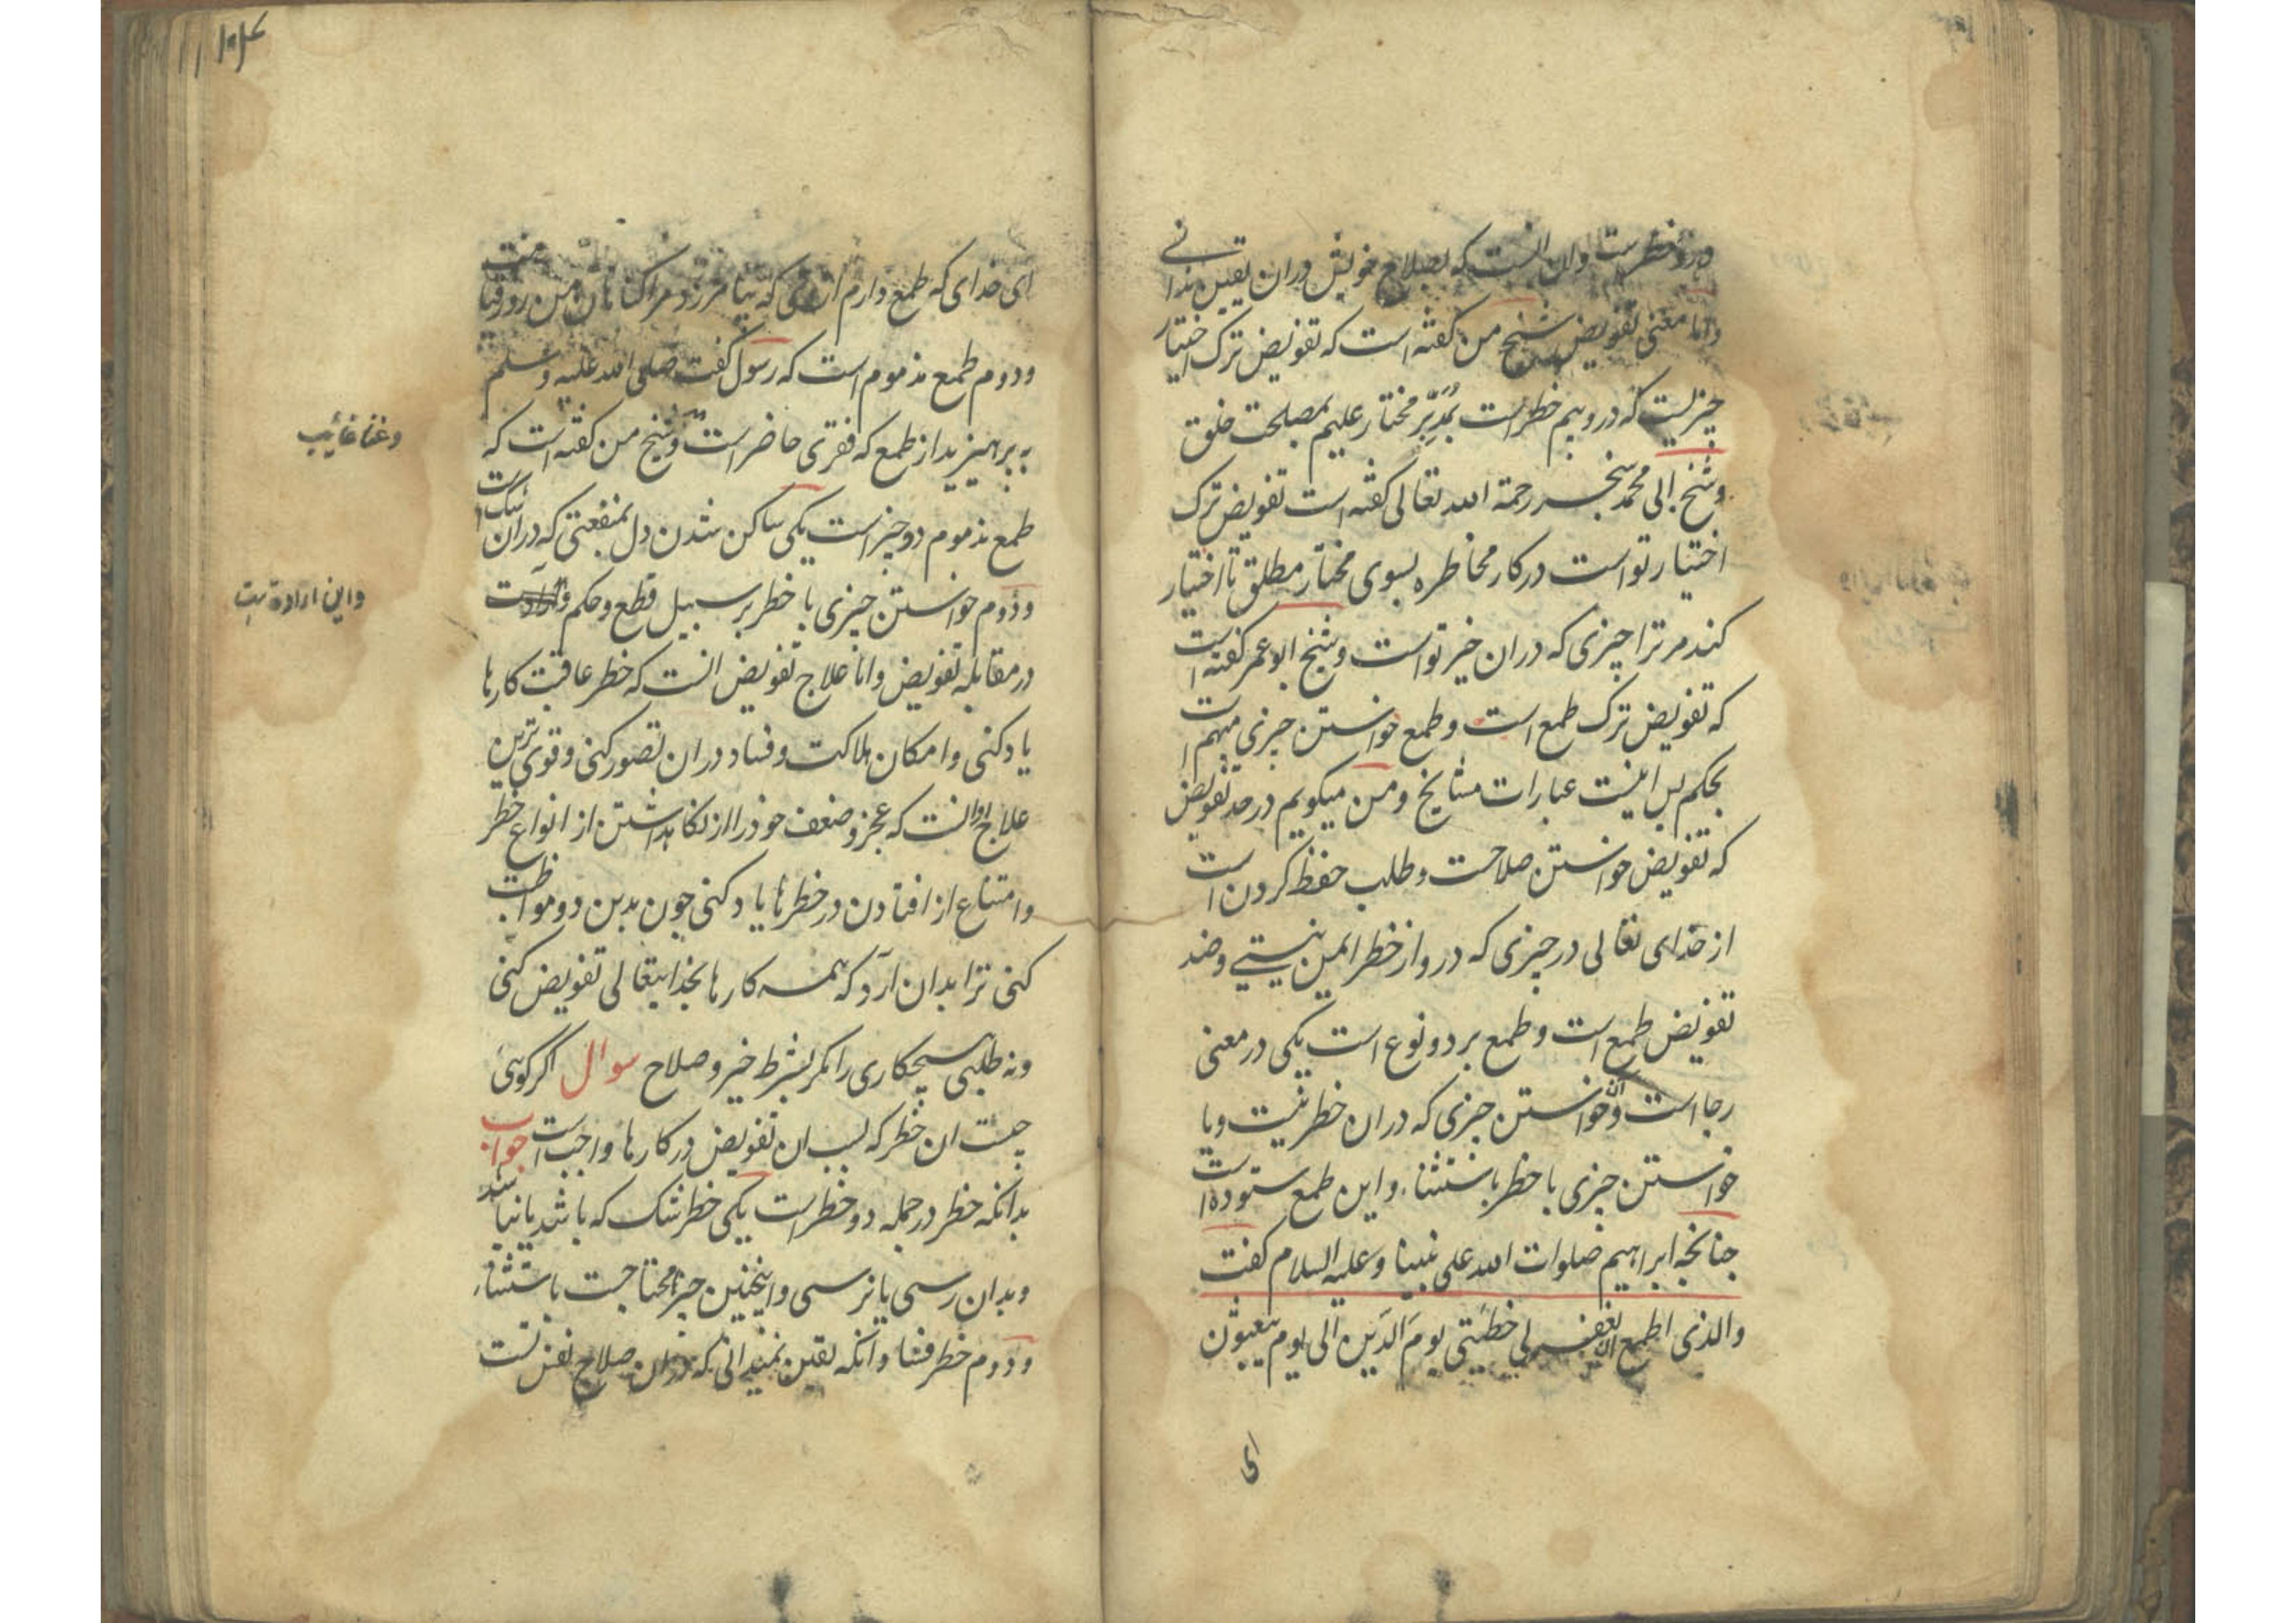 درو خطرست وان انست که بصلاح خویش دران یقین ندانی
واما معنی تفویض شیخ من کفته است که تفویض ترک اختیار
چیزیست که دروبیم خطراست بمدبر مختار علیم بمصلحت خلق
وشیخ ابی محمد سنجر رحمة الله تعالی کفته است تفویض ترک
اختیار تو است در کار مخاطره بسوی مختار مطلق تا اختیار
کند مر ترا چیزی که دران خیر تو است وشیخ ابو عمر کفته است
که تفویض ترک طمع است وطمع خواستن چیزی مبهم است
بحکم پس اینست عبارات مشایخ ومن میکویم در حد تفویض
که تفویض خواستن صلاحت وطلب حفظ کردن است
از خدای تعالی در چیزی که درو از خطر ایمن نیستی وضد
تفویض طمع است وطمع بر دو نوع است یکی در معنی
رجا است وآن خواستن چیزی که دران خطر نیست ویا
خواستن چیزی با خطر باستثناء واین طمع ستوده است
چنانچه ابراهیم صلوات الله علی نبینا وعلیه السلام کفت
والذی اطمع ان یغفر لی خطیئتی یوم الدین الی یوم یبعثون
ای
ای خدای که طمع دارم از وی که بیامرزد مرا کناهان من روز قیامت
ودوم طمع مذموم است که رسول کفت صلی الله علیه وسلم
بپرهیزید از طمع که فقری حاضر است وشیخ من کفته است که
وغنا غائب
طمع مذموم دو چیز است یکی ساکن شدن دل بمنفعتی که دران شک است
ودوم خواستن چیزی با خطر بر سبیل قطع وحکم
واین ارادت است
در مقابله تفویض واما علاج تفویض انست که خطر عاقبت کارها
یاد کنی وامکان هلاکت وفساد دران تصور کنی وقوی ترین
علاج او انست که عجز وضعف خود را از نکاهداشتن از انواع خطر
وامتناع از افتادن در خطرها یاد کنی چون بدین دو مواظبت
کنی ترا بدان آرد که همه کارها بخدایتعالی تفویض کنی
ونه طلبی هیچکاری را مکر بشرط خیر وصلاح سوال اکر کوئی
چیست ان خطر که بسبب ان تفویض در کارها واجب است جواب
بدانکه خطر در جمله دو خطر است یکی خطر شک که باشد یا نباشد
وبدان رسی یا نرسی واینچنین چیز محتاجست باستثناء
ودوم خطر فساد وانکه یقین نمیدانی که دران صلاح نفس تست